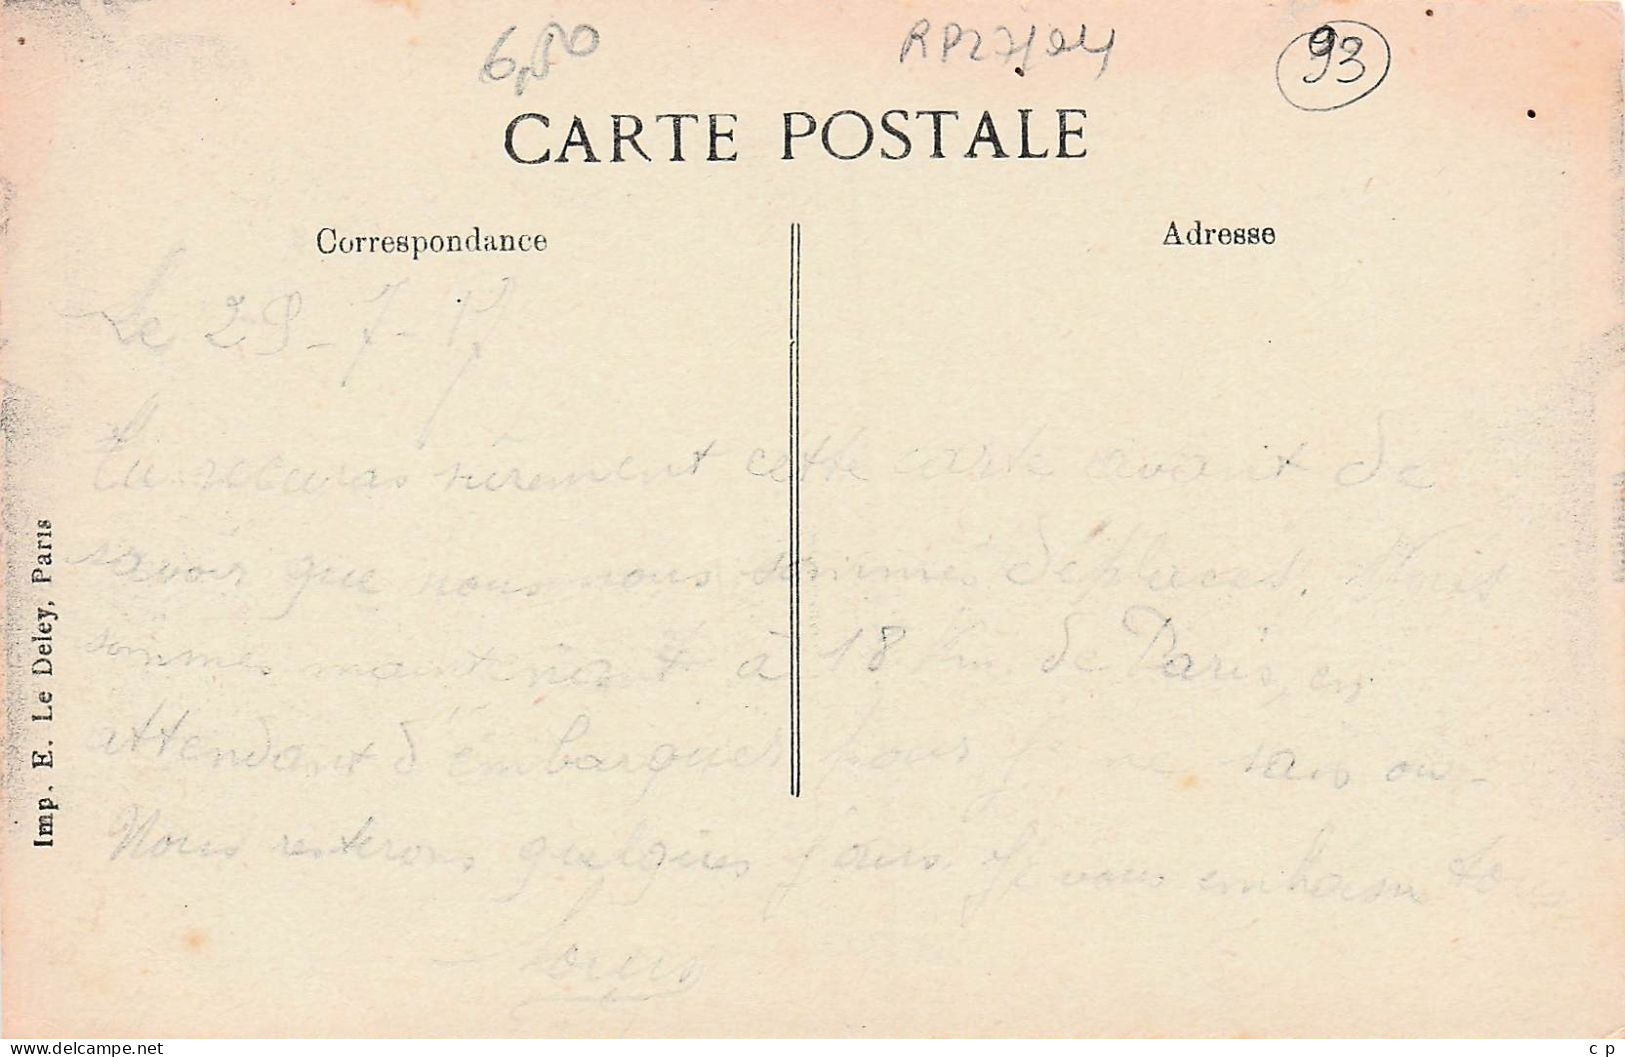 6,50
RP27/94
93
CARTE POSTALE
Correspondance
Adresse
Le 29-7-17
Tu recevras sûrement cette carte avant de
savoir que nous nous sommes déplacés. Nous
sommes maintenant à 18 km. de Paris, en
attendant d'embarquer pour je ne sais où -
Nous resterons quelques jours. Je vous embrasse tous
Louis
Imp. E. Le Deley, Paris
www.delcampe.net
c p